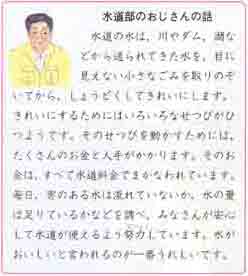 水道部のおじさんの話
水道の水は、川やダム、湖な
どから送られてきた水を、目に
見えない小さなごみを取りのぞ
いてから、しょうどくしてきれいにします。
きれいにするためにはいろいろなせつびがひ
つようです。そのせつびを動かすためには、
たくさんのお金と人手がかかります。そのお
金は、すべて水道料金でまかなわれています。
毎日、害のある水は流れていないか、水の量
は足りているかなどを調べ、みなさんが安心
して水道が使えるよう努力しています。水が
おいしいと言われるのが一番うれしいです。